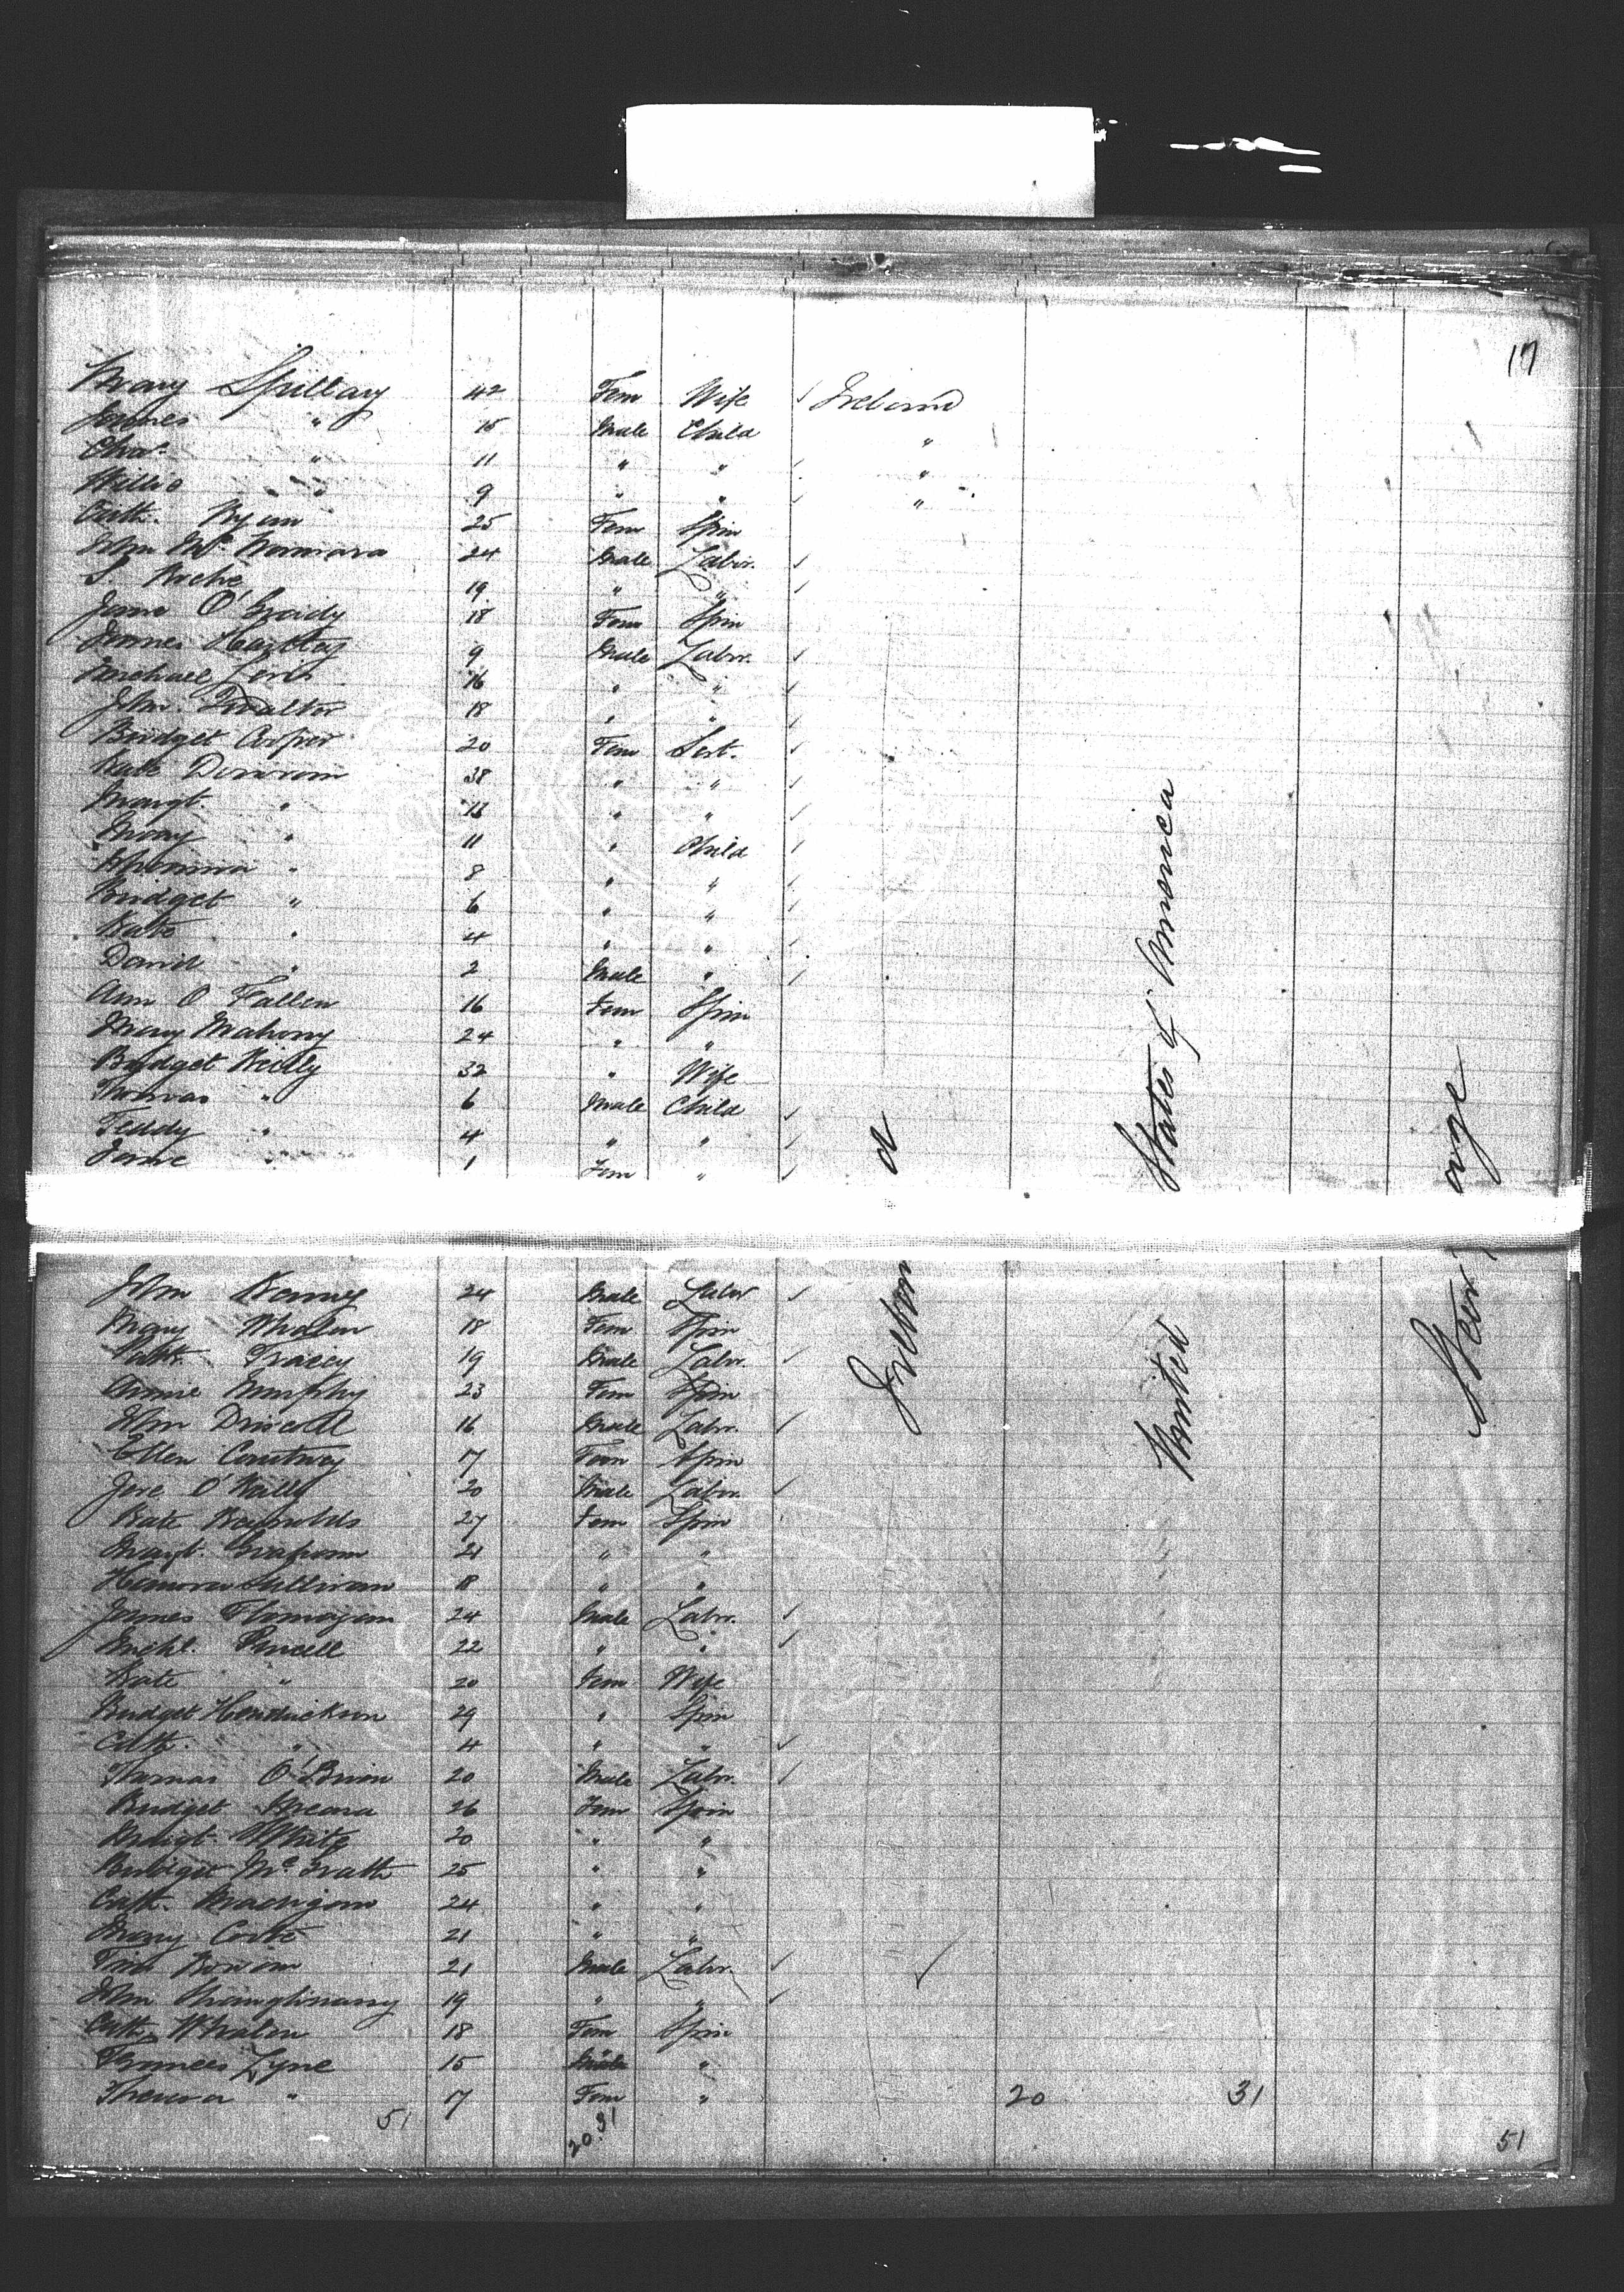 17
Mary Spillary 42 Fem Wife ✓ Ireland
James " 15 Male Child "
Chas. " 11 " " ✓ "
Willie " 9 " " ✓ "
Cath. Ryan 25 Fem Spin
John McNamara 24 Male Labr. ✓
S. Roche 19 " " ✓
Jane O'Grady 18 Fem Spin
James 9 Male Labr. ✓
Michael 16 " " ✓
John 18 " " ✓
Bridget Cooper 20 Fem Sert. ✓
Kate Donovan 38 " " ✓
Margt. " " " ✓
Mary " 11 " Child ✓
Johanna " 8 " " ✓
Bridget " 6 " " ✓
Kate " 4 " " ✓
David " 2 Male " ✓
Ann O Fallen 16 Fem Spin
Mary Mahony 24 " "
Bridget Reilly 32 " Wife
Thomas " 6 Male Child ✓
Teddy " 4 " " ✓
Jane " 1 Fem " ✓
John 24 Male Labr ✓
Mary Whalen 18 Fem Spin
Patk. Tracey 19 Male Labr. ✓
Annie Murphy 23 Fem Spin
John Driscoll 16 Male Labr. ✓
Ellen Courtney 17 Fem Spin
Jere O'Reilly 20 Male Labr. ✓
Kate Reynolds 27 Fem Spin
Margt. 21 " "
Hanora Sullivan 18 " "
James Flanagan 24 Male Labr. ✓
Michl. Purcell 22 " " ✓
Kate " 20 Fem Wife
Bridget Hendrickson 29 " Spin
Cath. " 4 " " ✓
Thomas O'Brien 20 Male Labr. ✓
Bridget 26 Fem Spin
Margt. White 20 " "
Bridget McGrath 25 " "
Cath. 24 " "
Mary 21 " "
Tim 21 Male Labr. ✓
John 19 " " ✓
Cath. Whalen 18 Fem Spin
Frances Lyne 15 " "
Theresa " 7 Fem "
Ireland
United States of America
Steerage
20 31
51
20 31
51